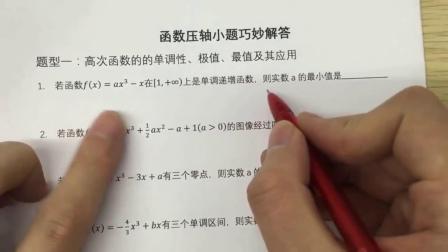 函数压轴小题巧妙解答
题型一：高次函数的的单调性、极值、最值及其应用
1. 若函数f(x) = ax³ − x在[1,+∞)上是单调递增函数，则实数 a 的最小值是________
2. 若函数 x³ + ½ax² − a + 1(a > 0)的图像经过
x³ − 3x + a有三个零点，则实数 a 的
(x) = −4/3x³ + bx有三个单调区间，则实